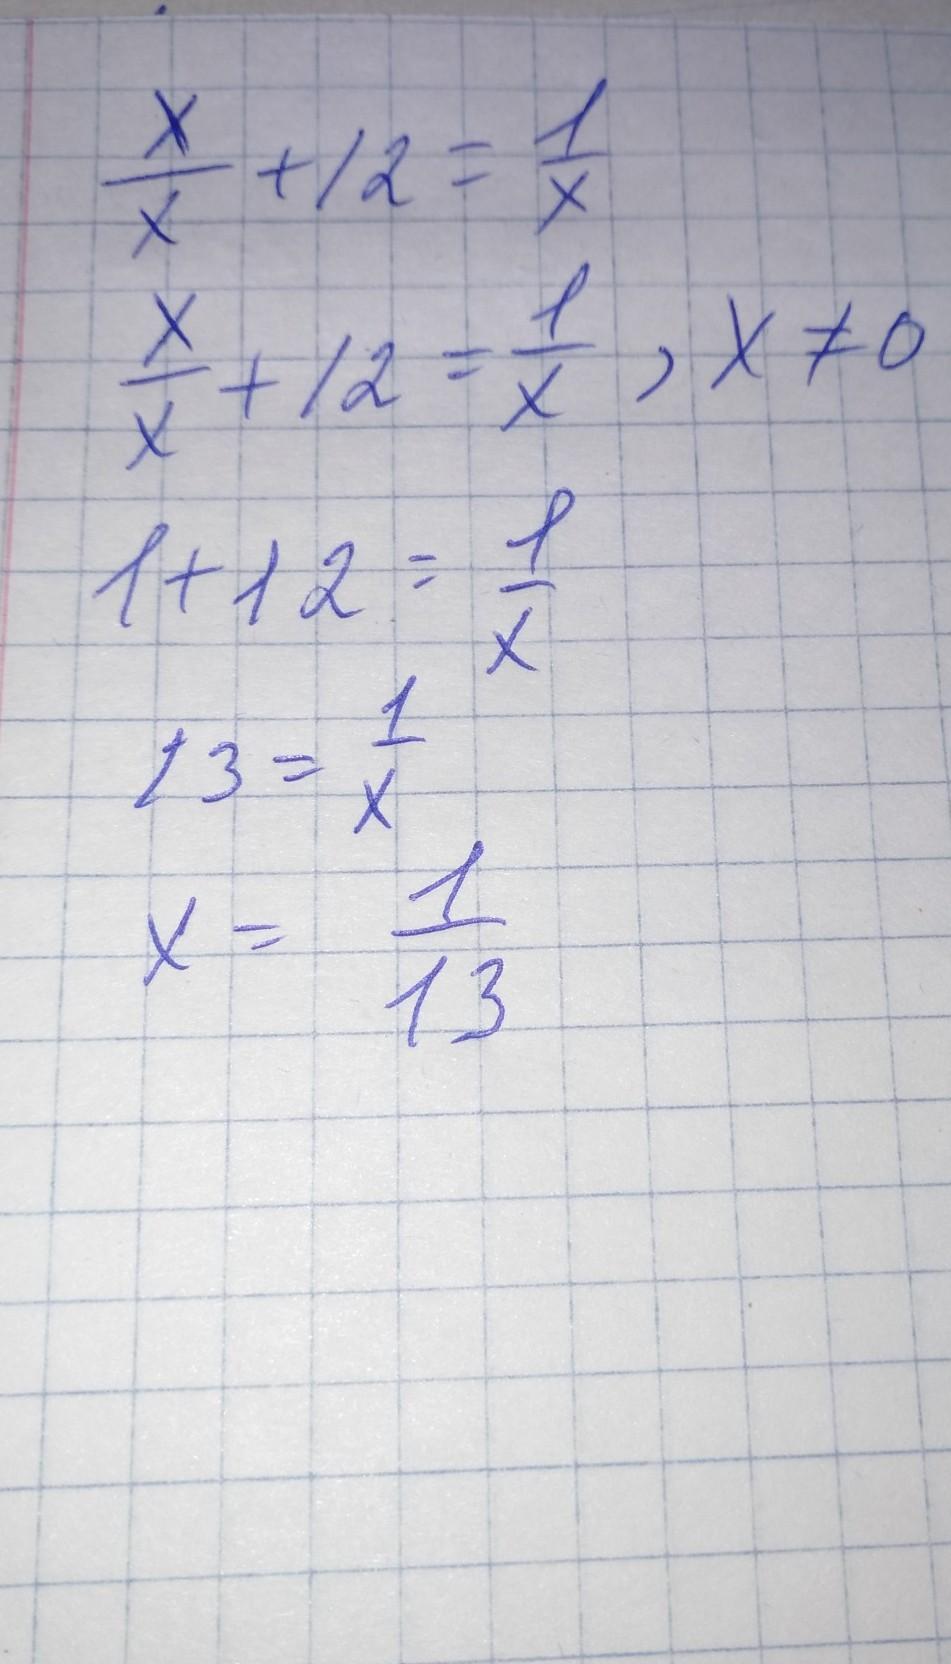 x/x + 12 = 1/x
x/x + 12 = 1/x , x ≠ 0
1 + 12 = 1/x
13 = 1/x
x = 1/13